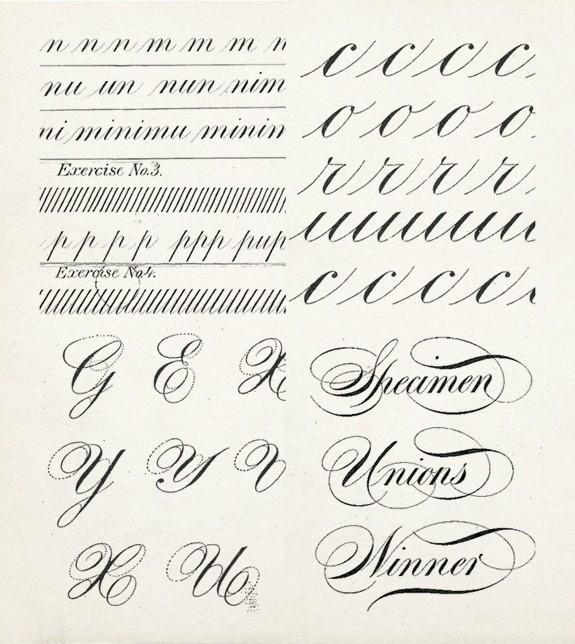 n n n m m m n
nu un nun nim
ni minimu minin
Exercise No.3.
p p p p ppp pup
Exercise No.4.
c c c c
o o o o
r r r r
c c c c
G E X
Y Y Y
X U
Specimen
Unions
Winner